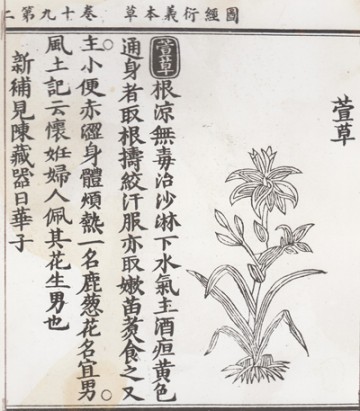 圖經衍義本草 卷十九第二
萱草
萱草 根涼無毒治沙淋下水氣主酒疸黃色
通身者取根擣絞汁服亦取嫩苗煑食之又
主小便赤澀身體煩熱一名鹿葱花名宜男
風土記云懷姙婦人佩其花生男也
新補見陳藏器日華子